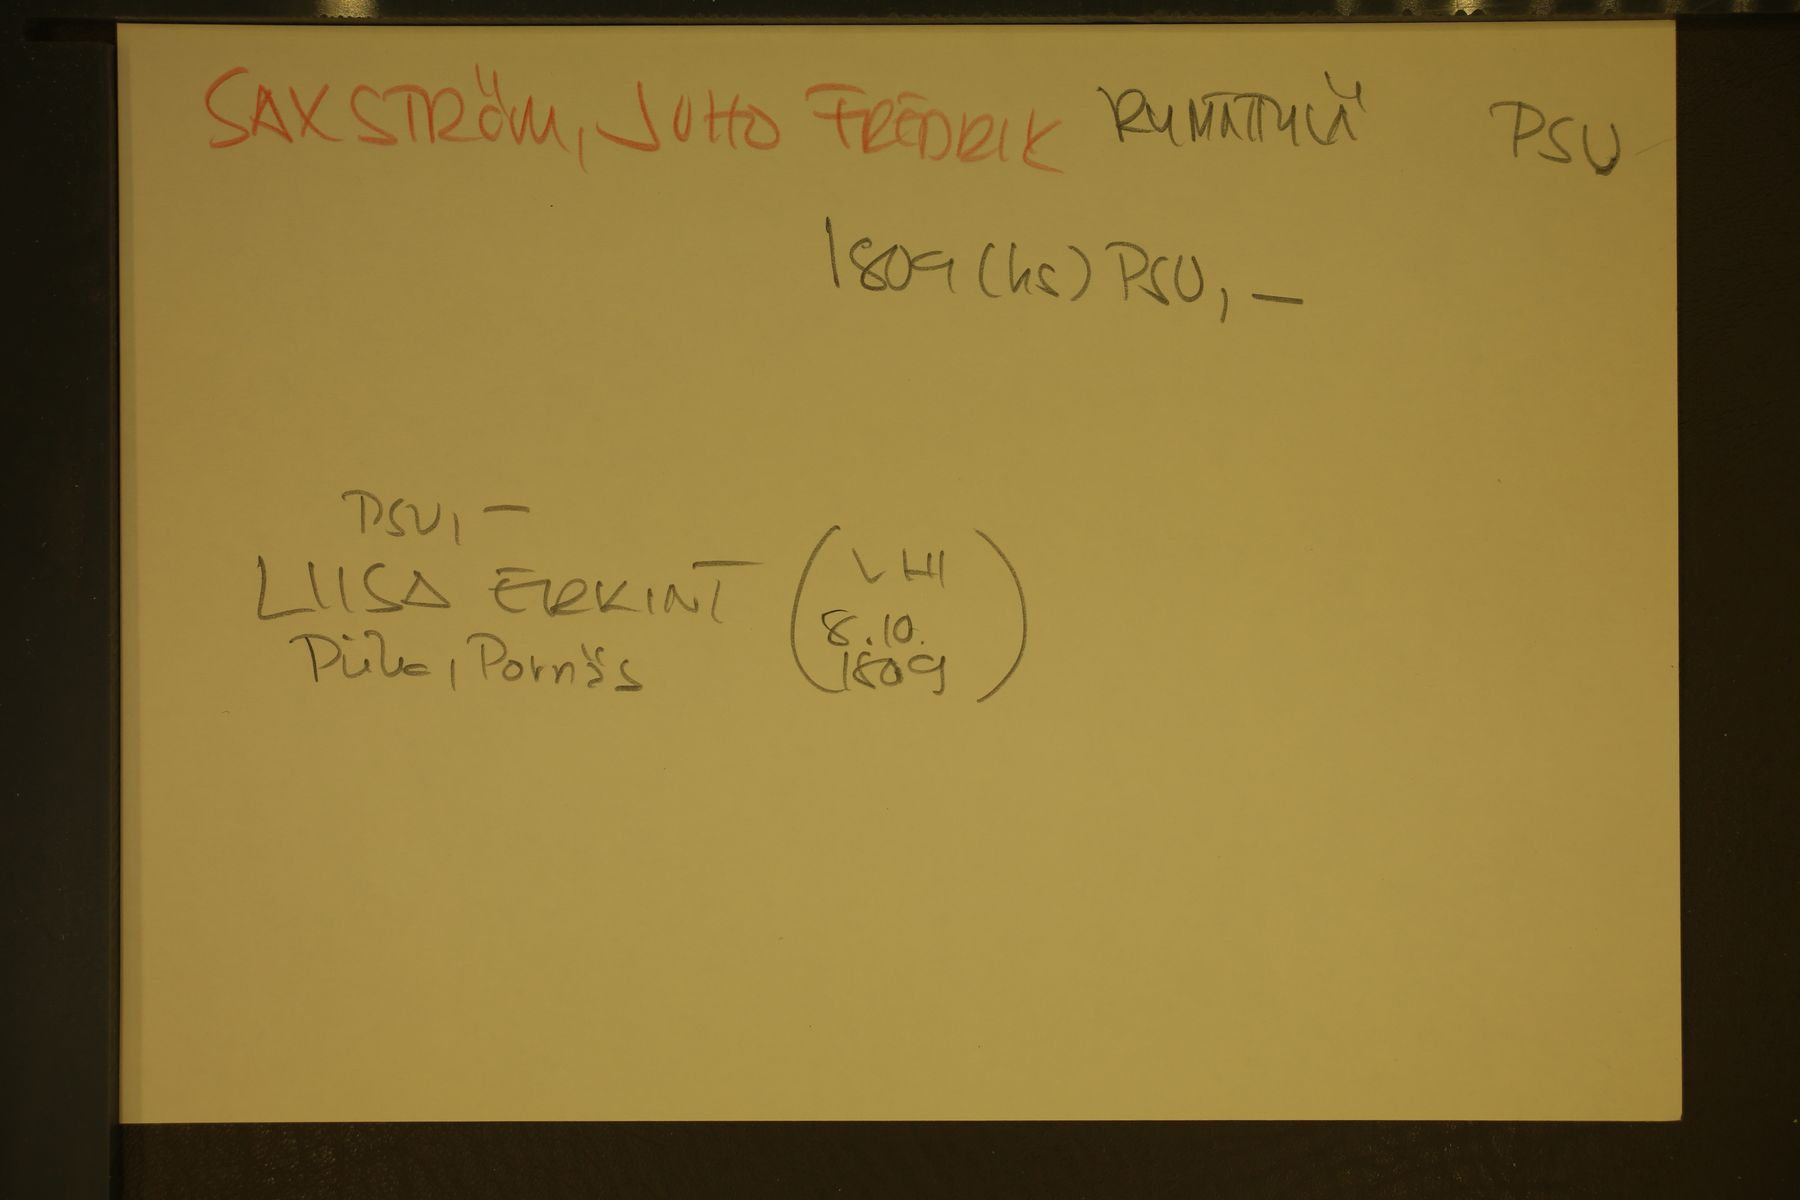 SAXSTRÖM, JUHO FREDRIK RYMÄTTYLÄ PSU
1809 (ks) PSU, —
PSU, —
LIISA ERKINT
Piika, Pornäs
(VHI
8.10.
1809)